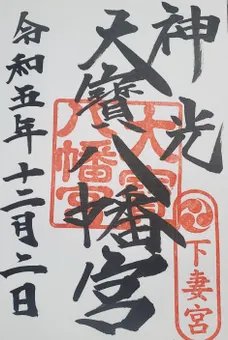 神光
天寶八幡宮
天寶八幡宮
下妻宮
令和五年十二月二日